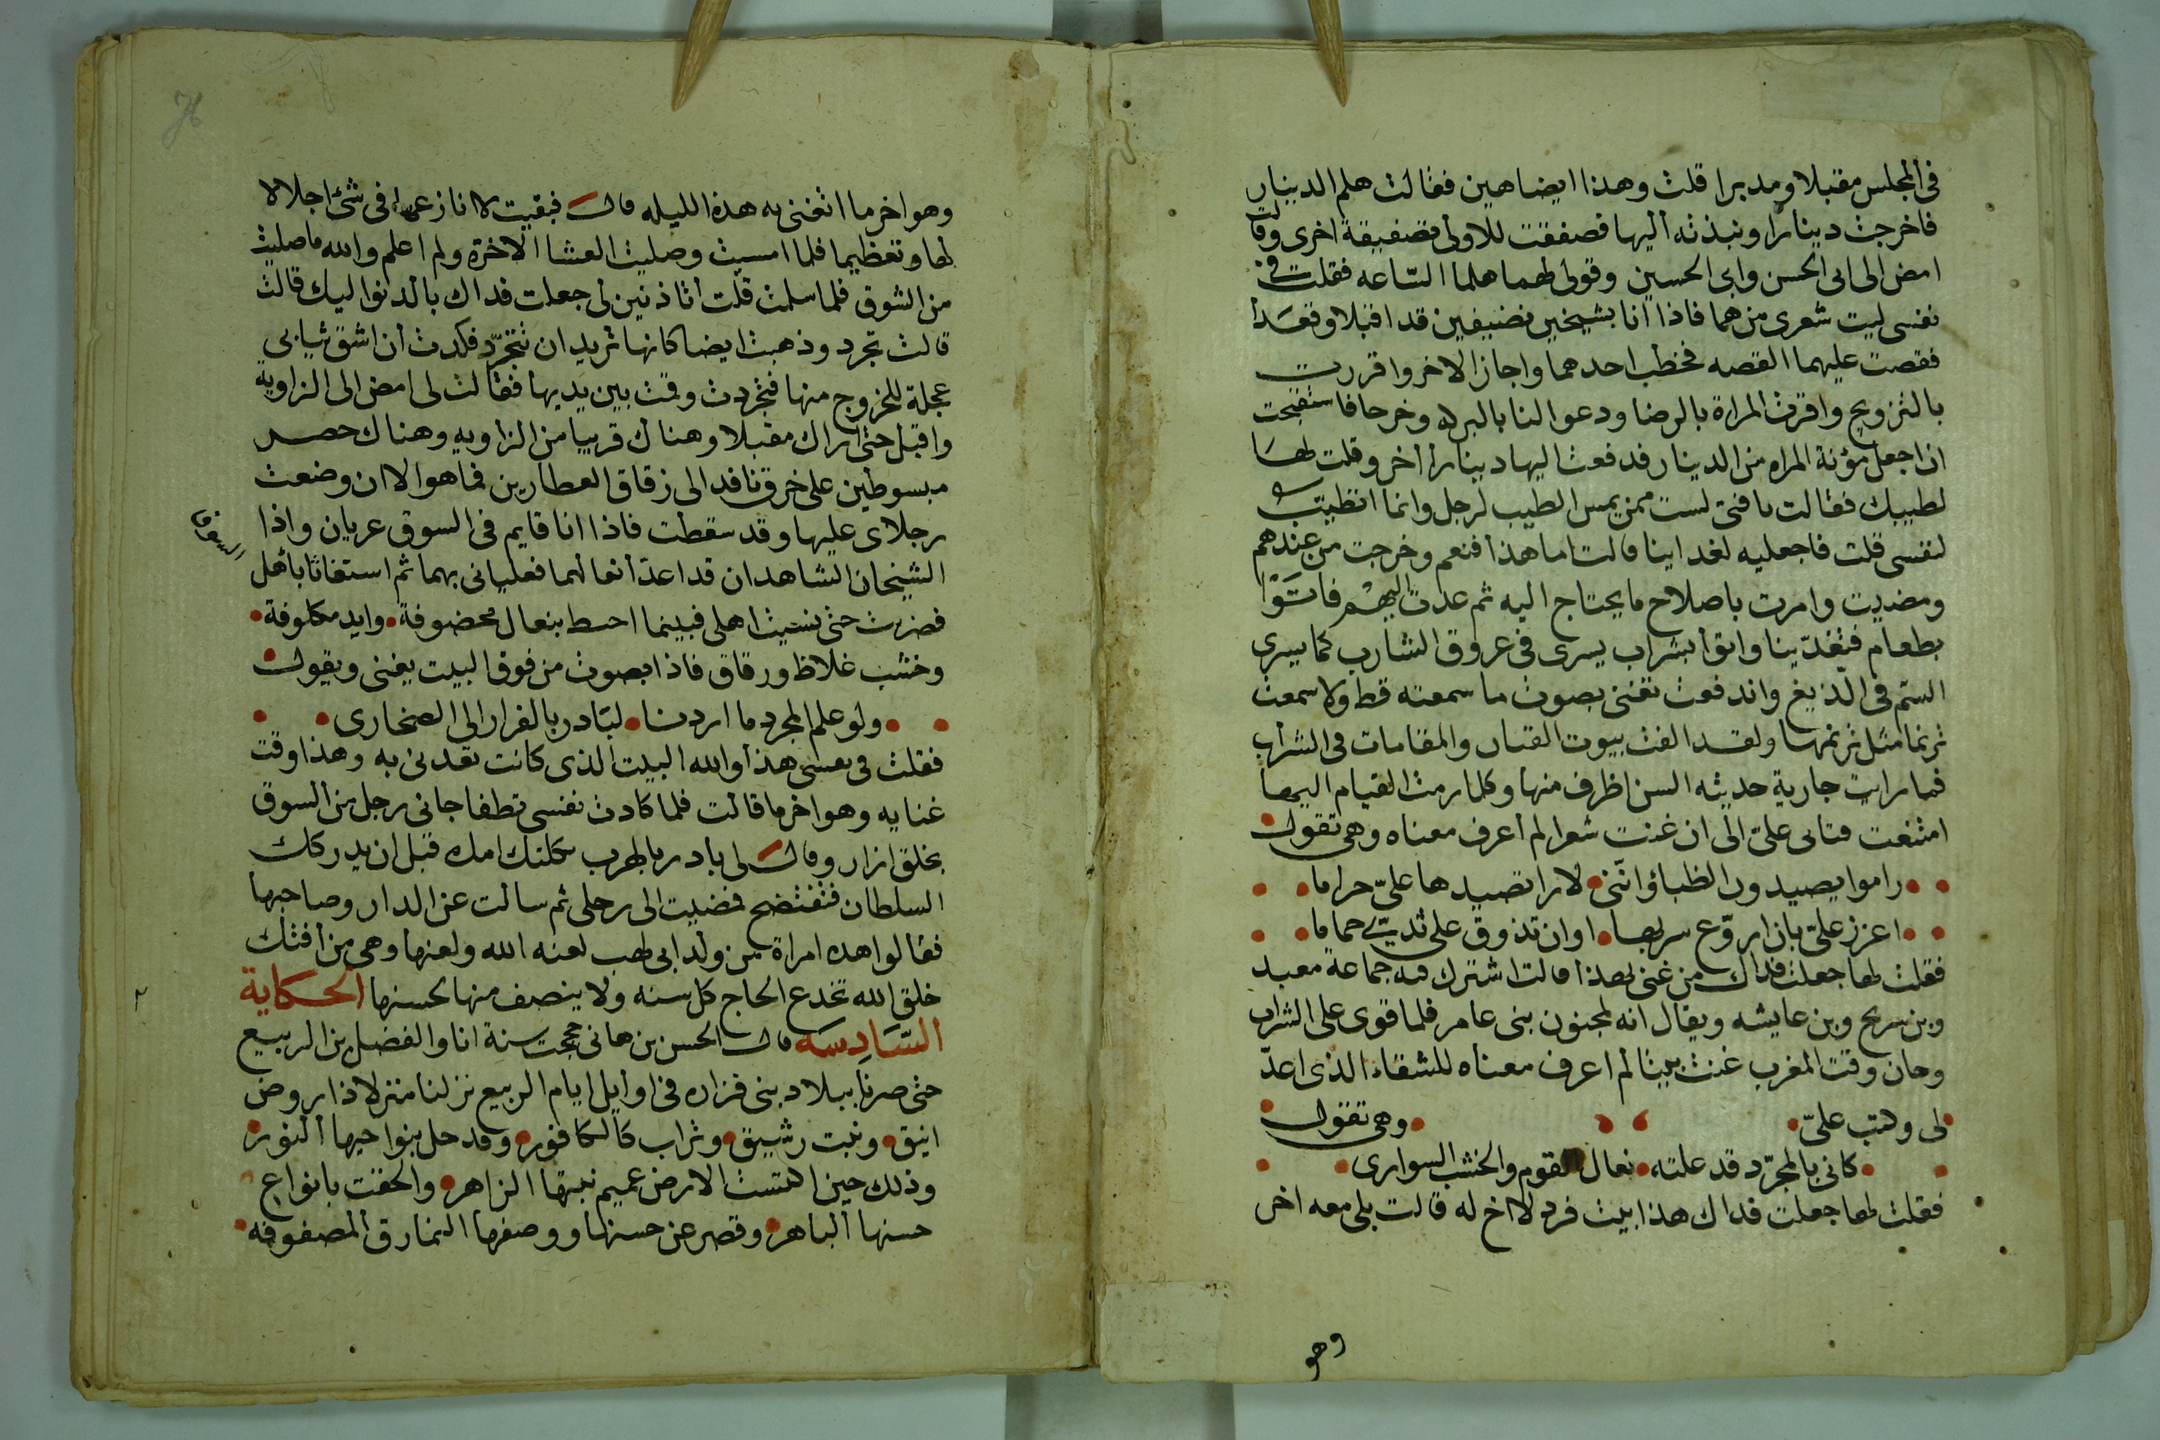 فى المجلس مقبلا ومدبرا قلت وهذا ايضا هين فقالت هلم الدينار
فاخرجت دينارا ونبذته اليها فصفقت للاولى تصفيقة اخرى وقالت
امض الى ابى الحسن وابى الحسين وقولى لهما هلما الساعه فقلت فى
نفسى ليت شعرى من هما فاذا انا بشيخين نضيفين قد اقبلا وقعدا
فقصت عليهما القصه فخطب احدهما واجاز الاخر واقررت
بالتزويج واقرت المراة بالرضا ودعوا لنا بالبركه وخرجا فاستقبحت
ان اجعل مؤنة المراه من الدينار فدفعت اليها دينارا أخر وقلت لها
لطيبك فقالت يا فتى لست ممن يمس الطيب لرجل وانما اتطيب به
لنفسى قلت فاجعليه لغداينا قالت اما هذا فنعم وخرجت من عندهم
ومضيت وامرت باصلاح ما يحتاج اليه ثم عدت اليهم فاتوا
بطعام فتغدينا واتوا بشراب يسرى فى عروق الشارب كما يسرى
السم فى الذيغ واندفعت تغنى بصوت ما سمعته قط ولا سمعت
ترنما مثل ترنمها ولقد الفت بيوت القيان والمقامات فى الشراب
فما رايت جارية حديثه السن اظرف منها وكلما رمت القيام اليها
امتنعت وتابى على الى ان غنت شعرا لم أعرف معناه وهى تقول
راموا يصيدون الظباؤ اننى لارا تصيدها على حراما
اعزز على بان اروع سربها اوان تذوق على ثديى حماما
فقلت لها جعلت فداك من غنى لهذا قالت اشترك فيه جماعة معبد
وبن سريح وبن عايشه ويقال انه لمجنون بنى عامر فلما قوى على الشراب
وحان وقت المغرب غنت بيتا لم اعرف معناه للشقاء الذى اعد
لى وكتب على وهى تقول
كانى بالمجرد قد علته نعال القوم والخشب السوارى
فقلت لها جعلت فداك هذا بيت فرد لا اخ له قالت بلى معه اخر
وهو
وهو اخر ما اتغنى به هذه الليله قال فبقيت لا انازعها فى شئ اجلالا
لها وتعظيما فلما امسيت وصليت العشا الاخرة ولم اعلم والله ما صليت
من الشوق فلما سلمت قلت اتاذنين لى جعلت فداك بالدنو اليك قالت
قالت تجرد وذهبت ايضا كانها تريد ان تتجرد فكدت أن اشق ثيابى
عجلة للخروج منها فتجردت وقمت بين يديها فقالت لى امض الى الزاوية
واقبل حتى اراك مقبلا وهناك قريبا من الزاويه وهناك حصير
مبسوطين على خرق نافد الى زقاق العطارين فما هو الا ان وضعت
رجلاى عليها وقد سقطت فاذا انا قايم فى السوق عريان واذا
الشيخان الشاهدان قد اعدا نعالهما فعليانى بهما ثم استغاثا بأهل
السوق
فضربت حتى نسيت اهلى فبينما احبط بنعال مخصوفة وايد مكلوفة
وخشب غلاظ ورقاق فاذا بصوت من فوق البيت يغنى ويقول
ولو علم المجرد ما اردنا لبادر بالفرار الى الصحارى
فقلت فى نفسى هذا والله البيت الذى كانت تعدنى به وهذا وقت
غنايه وهو اخر ما قالت فلما كادت نفسى تطفا جانى رجل من السوق
بخلق ازار وقال لى بادر بالهرب ثكلتك امك قبل ان يدركك
السلطان فتفتضح فمضيت الى رحلى ثم سالت عن الدار وصاحبها
فقالوا هده امراة من ولد ابى لهب لعنه الله ولعنها وهى من أفتك
خلق الله تخدع الحاج كل سنه ولا ينصف منها لحسنها الحكاية
السادسه قال الحسن بن هانى حججت سنة انا والفضل بن الربيع
حتى صرنا ببلاد بنى فزاره فى اوايل ايام الربيع نزلنا منزلا ذا روض
انيق ونبت رشيق وتراب كالكافور وقد حل بنواحيها النور
وذلك حين اكتست الارض عميم نبتها الزاهر والحفت بانواع
حسنها الباهر وقصر عن حسنها ووصفها النمارق المصفوفه